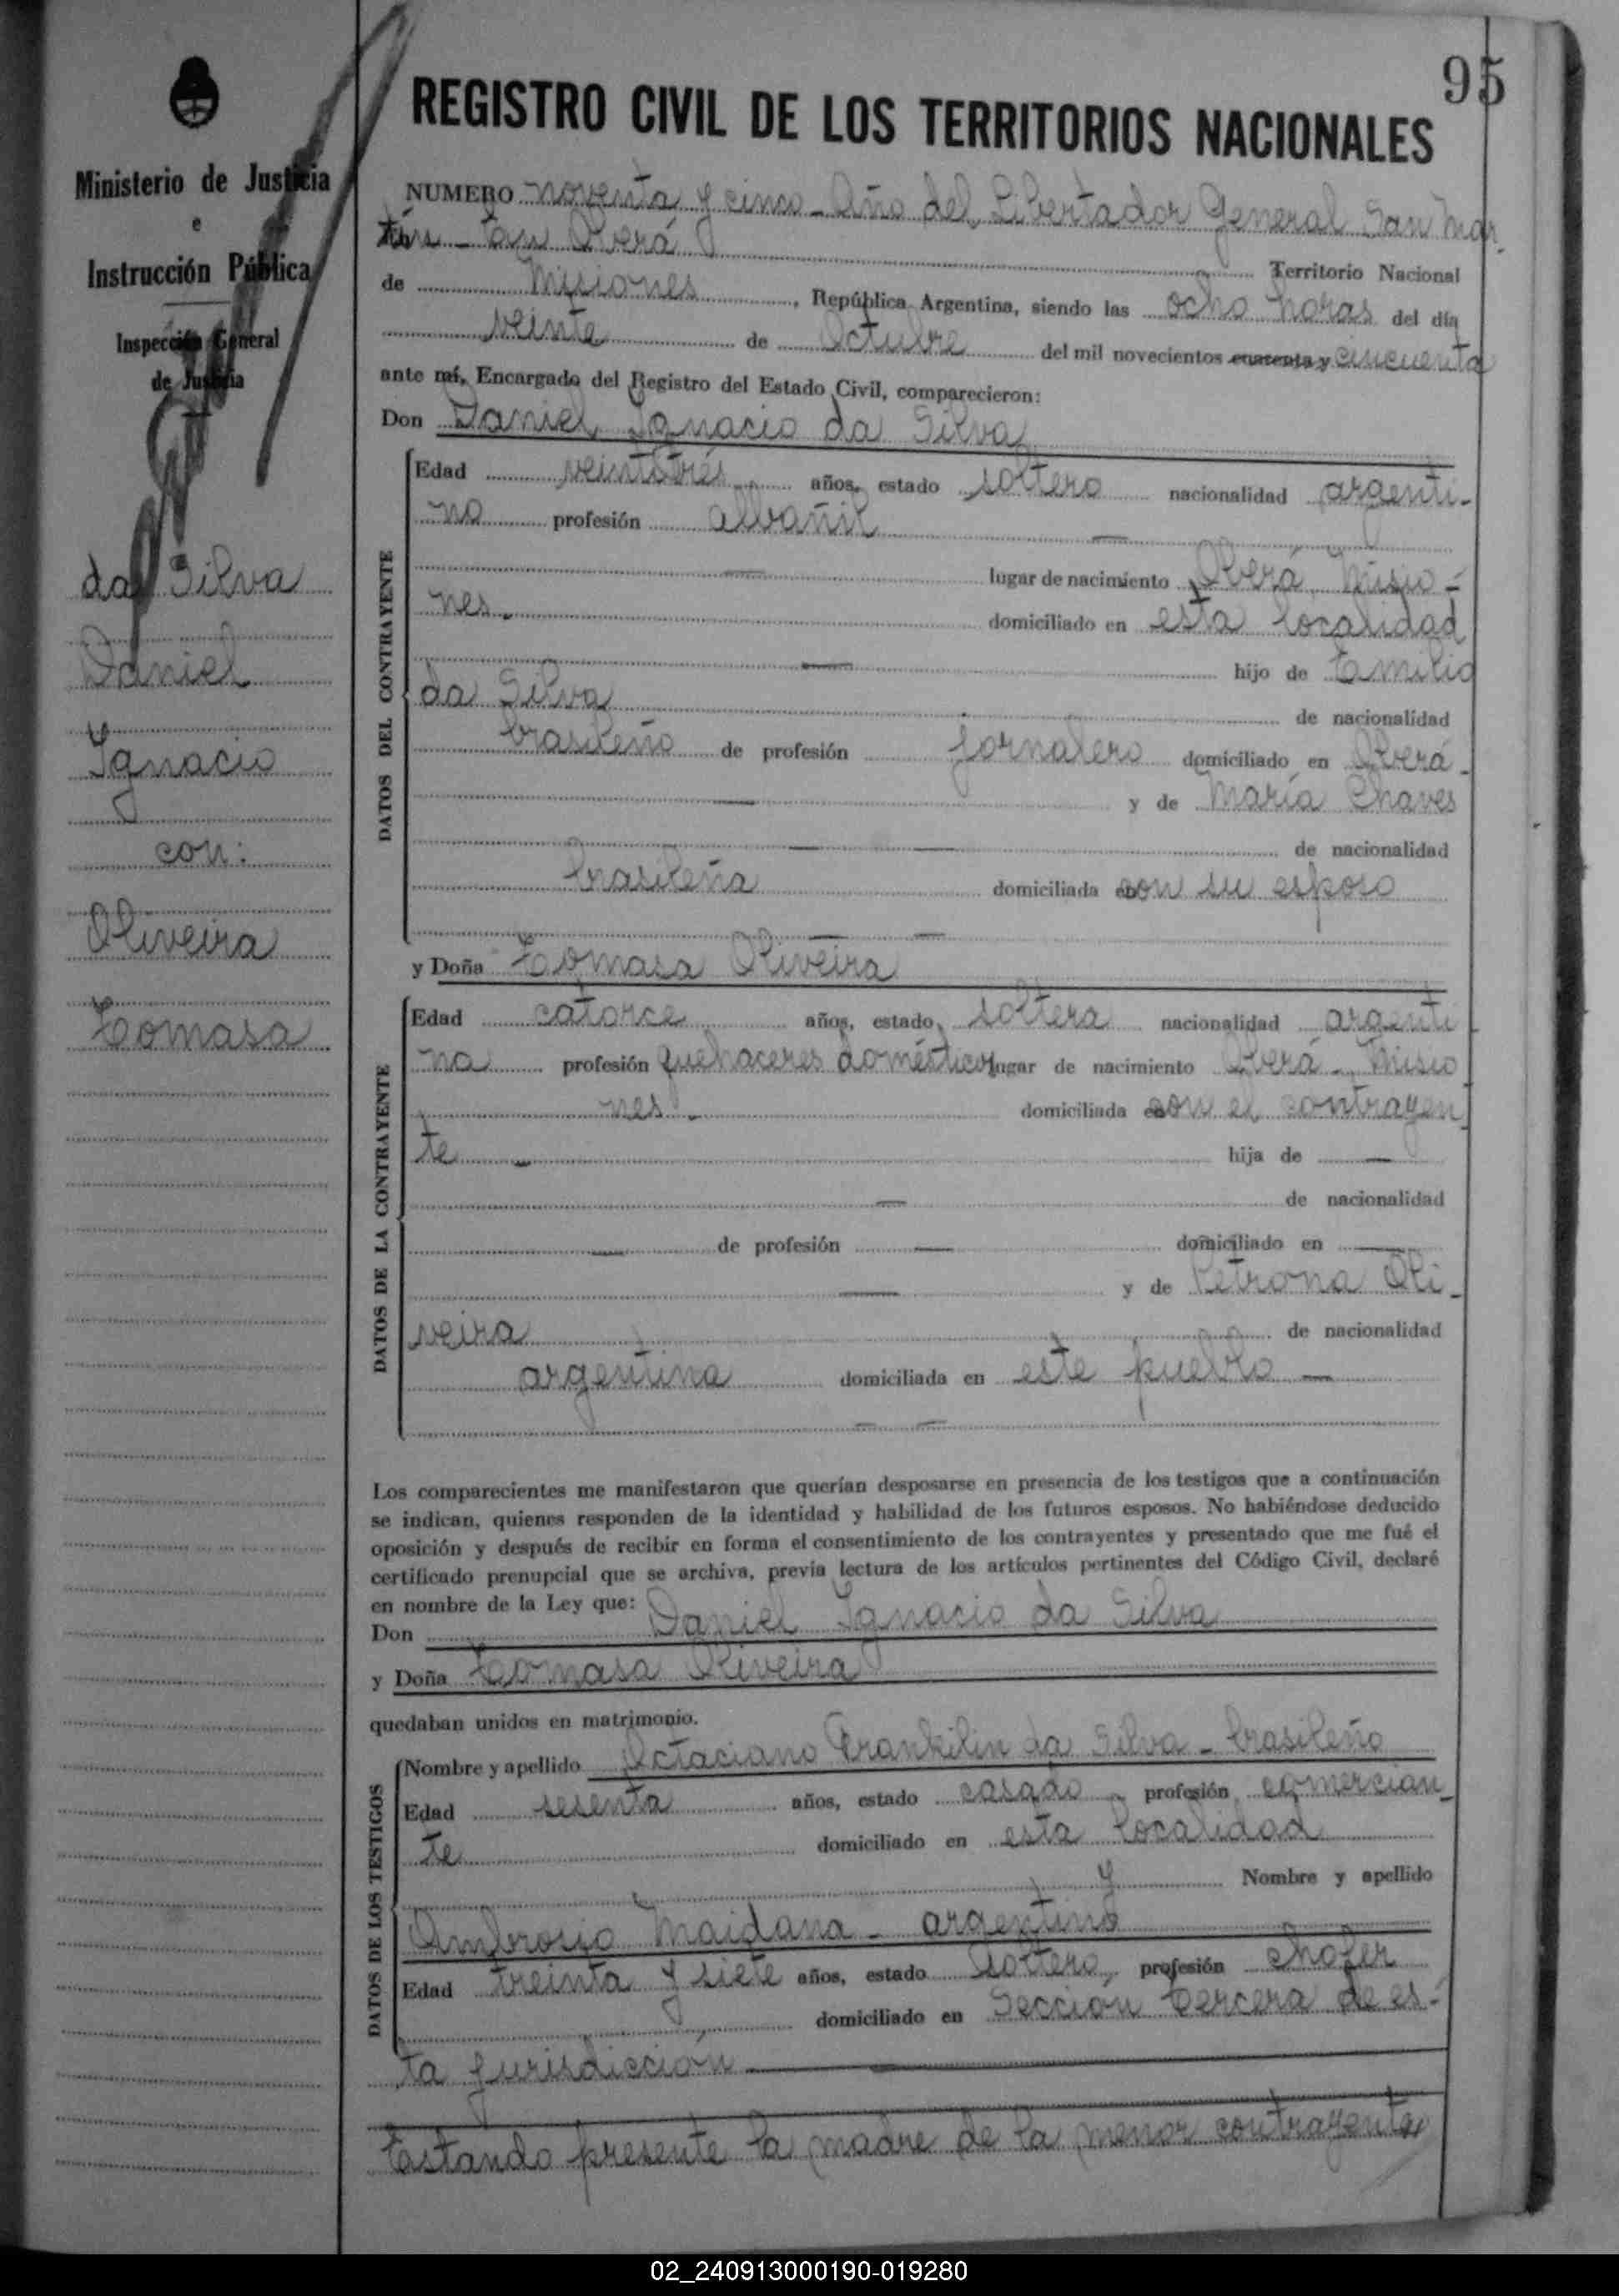 95
REGISTRO CIVIL DE LOS TERRITORIOS NACIONALES
Ministerio de Justicia
e
Instrucción Pública
Inspección General
de Justicia
da Silva
Daniel
Ignacio
con:
Oliveira
Tomasa
NUMERO noventa y cinco - Año del Libertador General San Mar
tín - En Oberá Territorio Nacional
de Misiones, República Argentina, siendo las ocho horas del día
veinte de Octubre del mil novecientos cuarenta y cincuenta
ante mí, Encargado del Registro del Estado Civil, comparecieron:
Don Daniel Ignacio da Silva
DATOS DEL CONTRAYENTE
Edad veintitrés años, estado soltero nacionalidad argenti-
no profesión albañil —
— lugar de nacimiento Oberá Misio-
nes. domiciliado en esta localidad
— hijo de Emilio
da Silva de nacionalidad
brasileño de profesión jornalero domiciliado en Oberá
— y de María Chaves
— — de nacionalidad
brasileña domiciliada en con su esposo
— —
y Doña Tomasa Oliveira
DATOS DE LA CONTRAYENTE
Edad catorce años, estado soltera nacionalidad argenti
na profesión quehaceres domésticos lugar de nacimiento Oberá - Misio
nes - domiciliada en con el contrayen
te - hija de —
— de nacionalidad
— de profesión — domiciliado en —
— y de Petrona Oli-
veira de nacionalidad
argentina domiciliada en este pueblo —
— —
Los comparecientes me manifestaron que querían desposarse en presencia de los testigos que a continuación
se indican, quienes responden de la identidad y habilidad de los futuros esposos. No habiéndose deducido
oposición y después de recibir en forma el consentimiento de los contrayentes y presentado que me fué el
certificado prenupcial que se archiva, previa lectura de los artículos pertinentes del Código Civil, declaré
en nombre de la Ley que:
Don Daniel Ignacio da Silva
y Doña Tomasa Oliveira
quedaban unidos en matrimonio.
DATOS DE LOS TESTIGOS
Nombre y apellido Octaciano Frankilin da Silva - brasileño
Edad sesenta años, estado casado profesión comercian-
te domiciliado en esta localidad
y Nombre y apellido
Ambrosio Maidana - argentino
Edad treinta y siete años, estado soltero, profesión chofer
domiciliado en Sección tercera de es-
ta jurisdicción —
Estando presente la madre de la menor contrayente
02_240913000190-019280